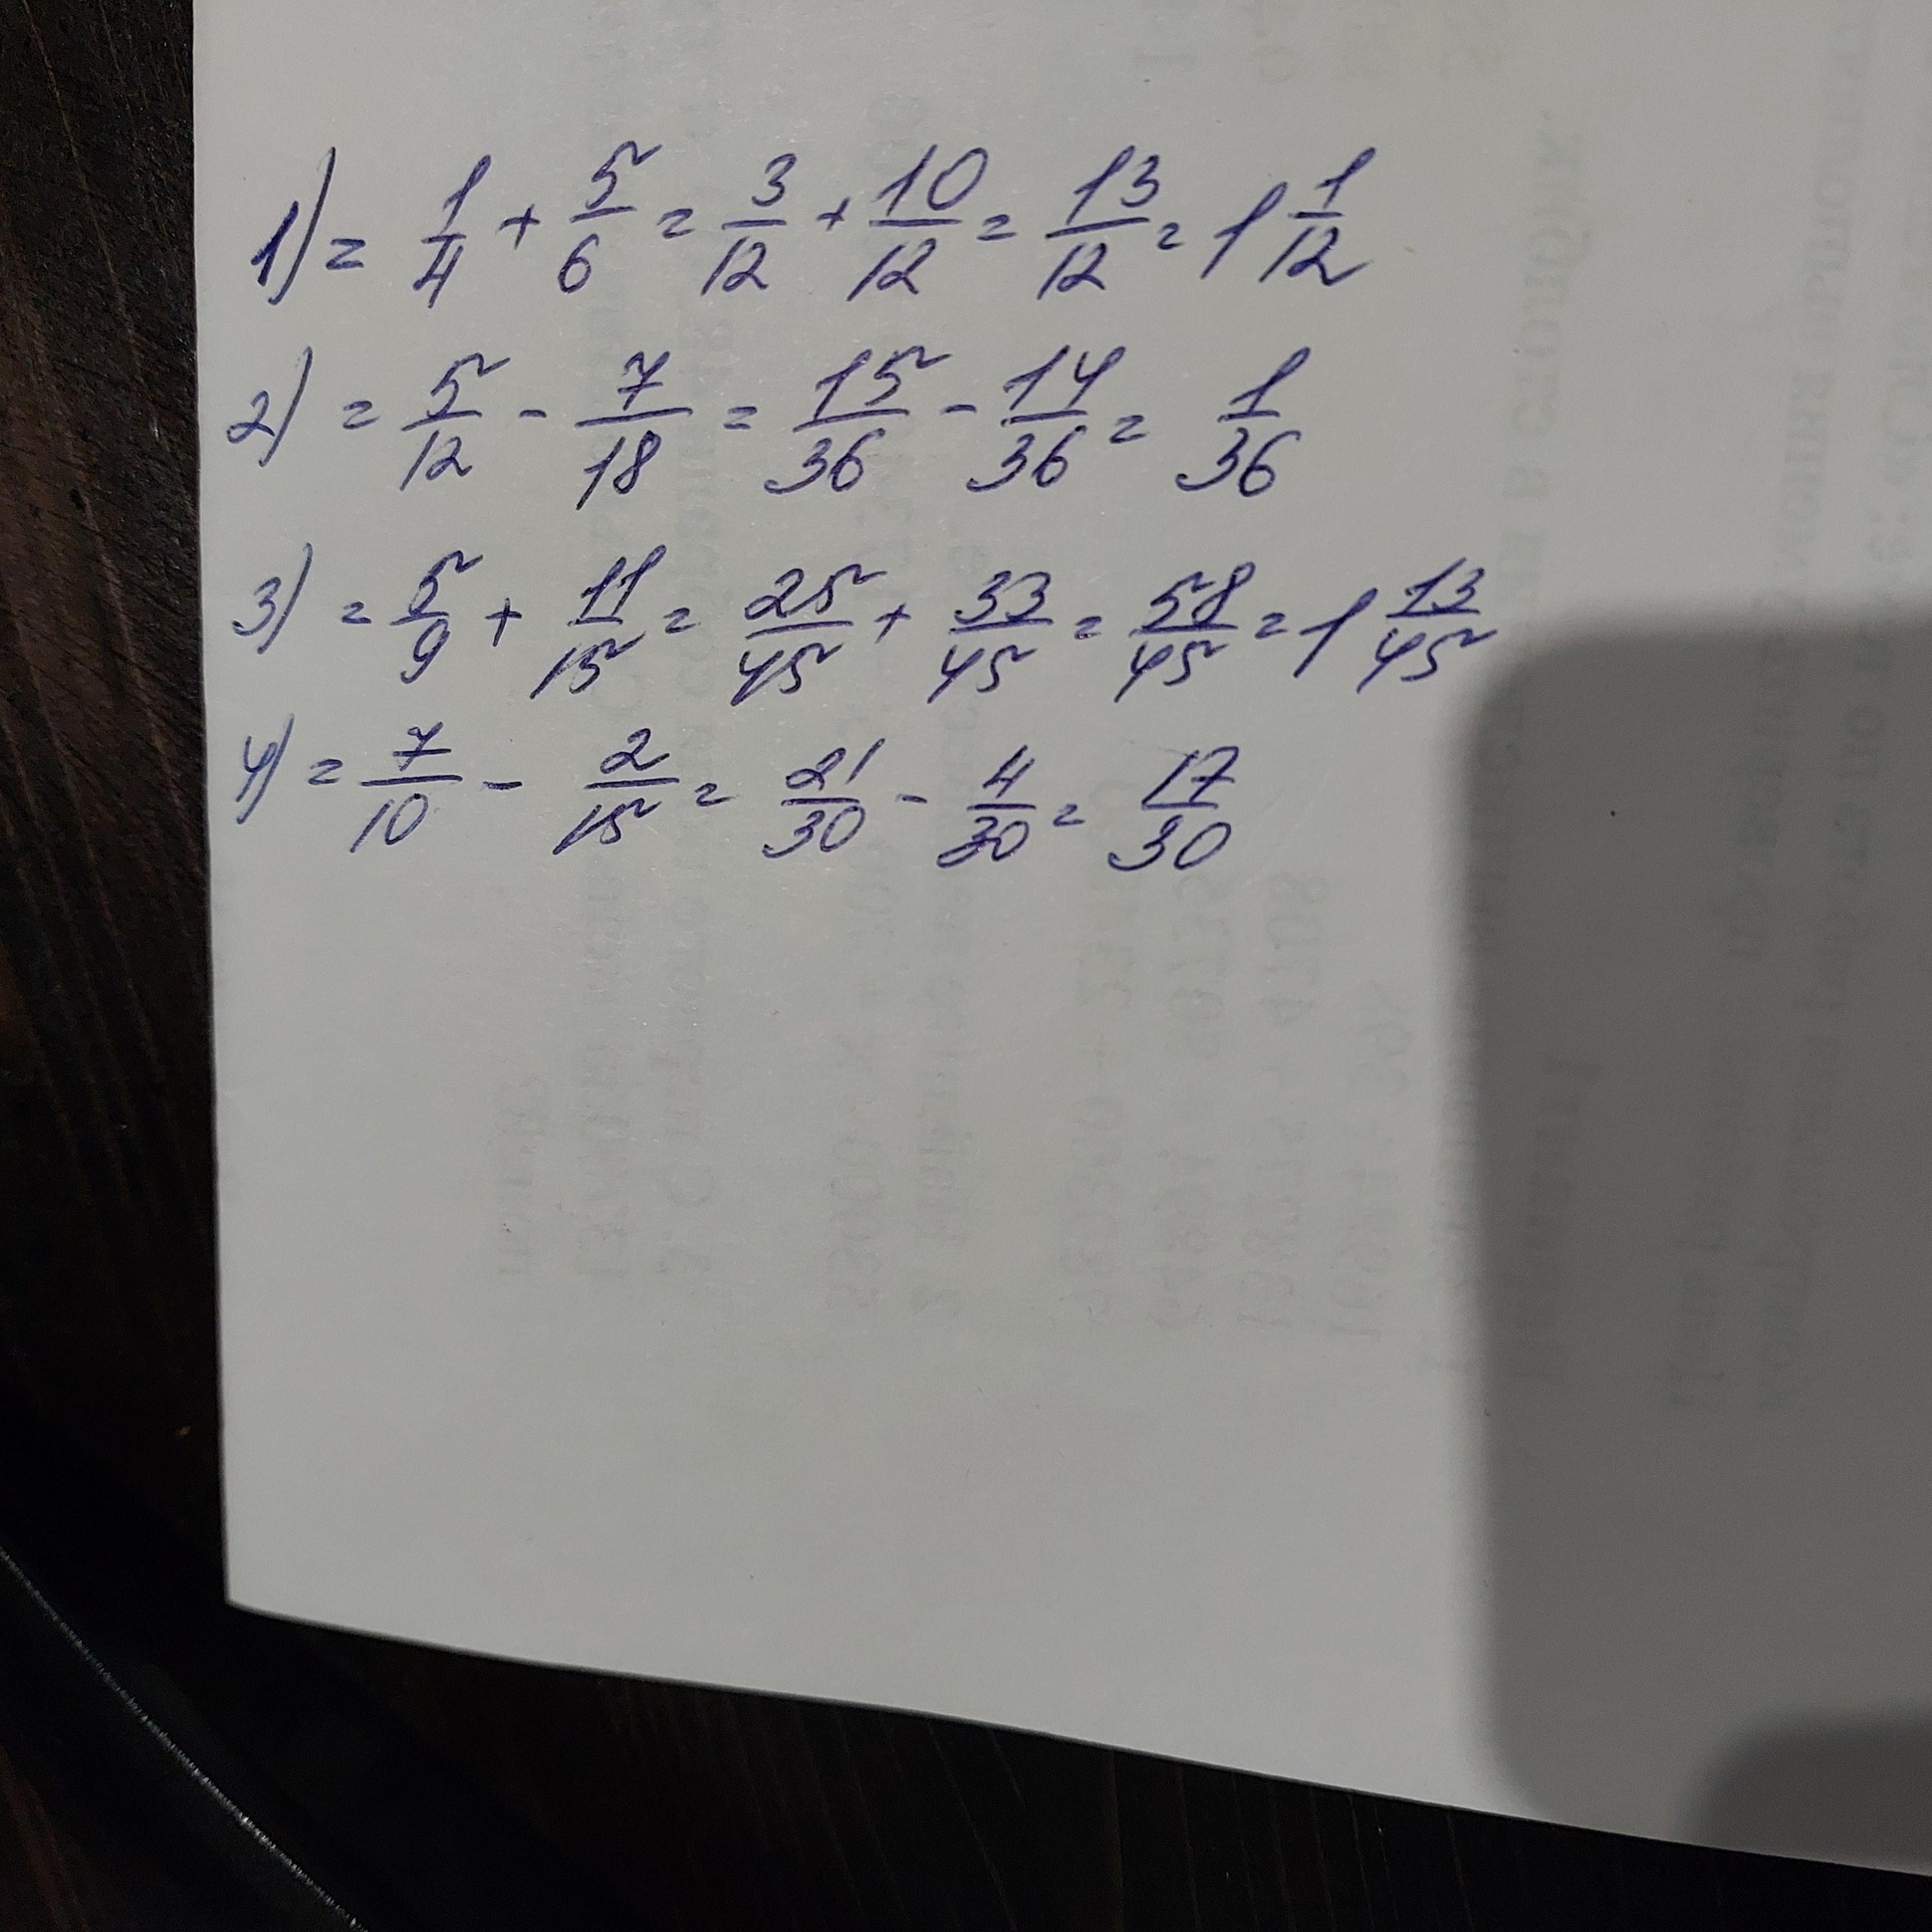 1) = 1/4 + 5/6 = 3/12 + 10/12 = 13/12 = 1 1/12
2) = 5/12 - 7/18 = 15/36 - 14/36 = 1/36
3) = 5/9 + 11/15 = 25/45 + 33/45 = 58/45 = 1 13/45
4) = 7/10 - 2/15 = 21/30 - 4/30 = 17/30